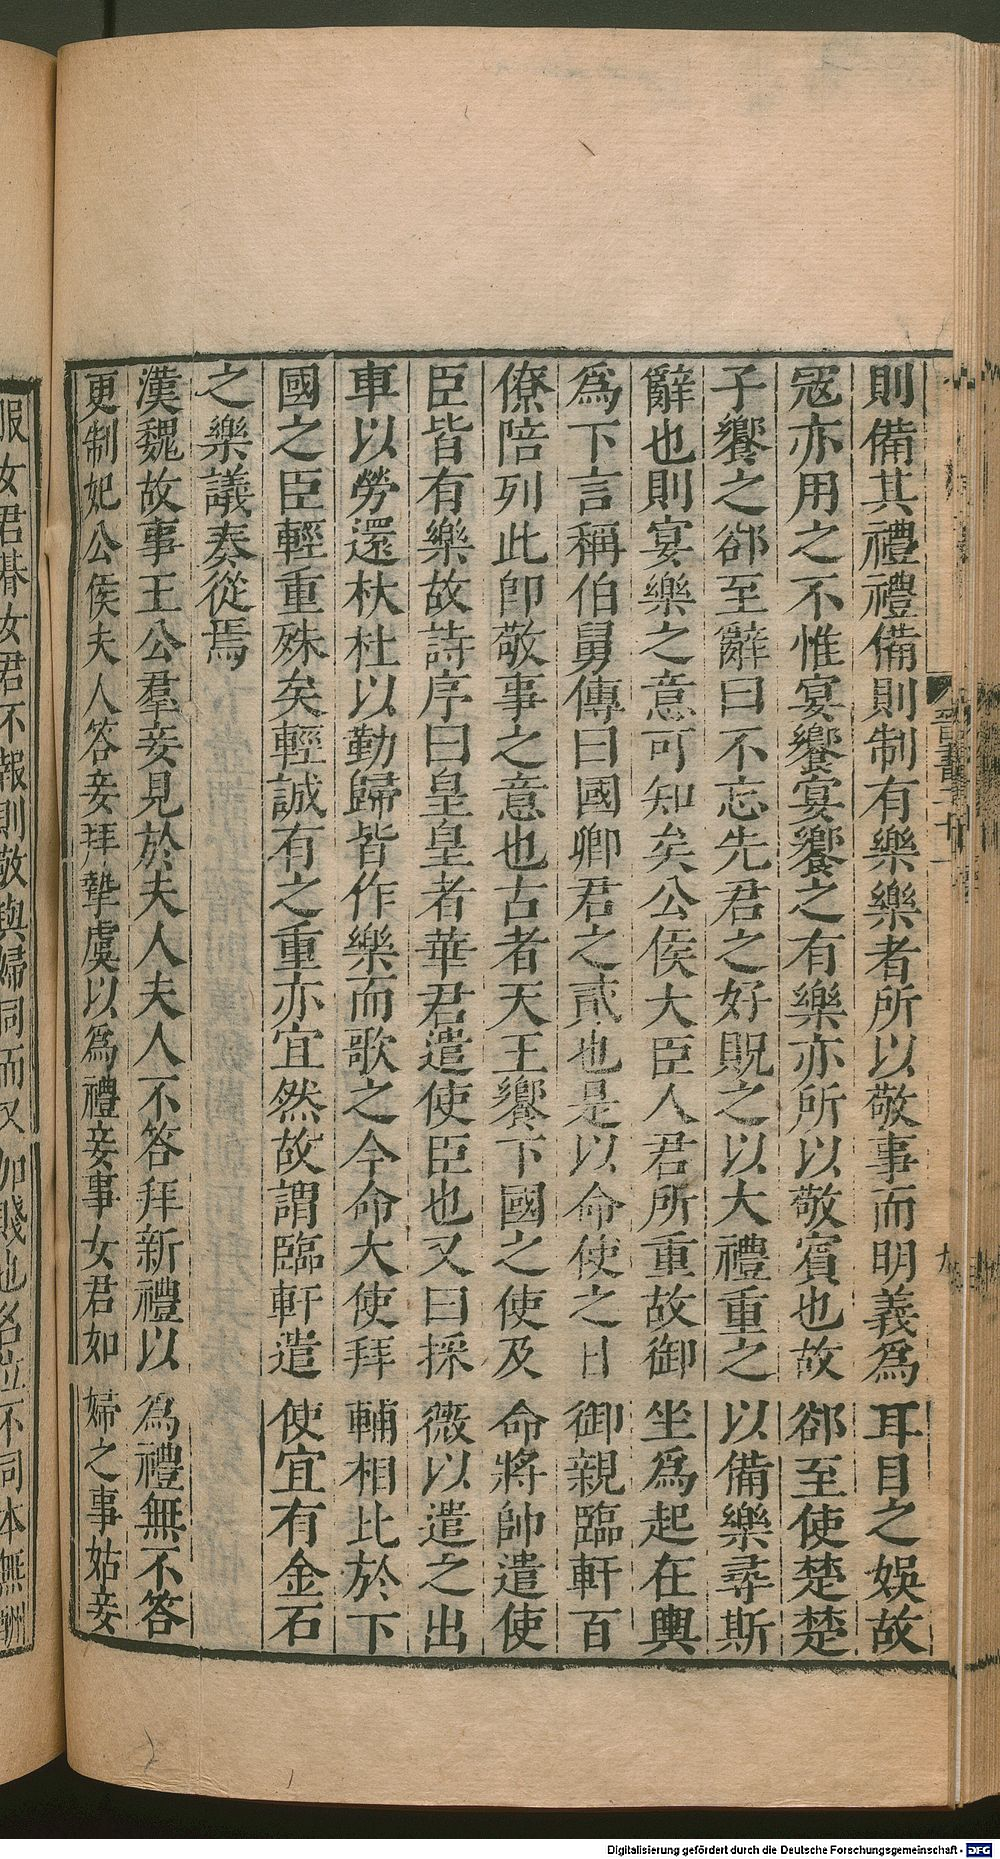 則備其禮禮備則制有樂樂者所以敬事而明義爲耳目之娛故
冦亦用之不惟宴饗宴饗之有樂亦所以敬賓也故郤至使楚楚
子饗之郤至辭曰不忘先君之好貺之以大禮重之以備樂尋斯
辭也則宴樂之意可知矣公侯大臣人君所重故御坐爲起在輿
爲下言稱伯舅傳曰國卿君之貳也是以命使之日御親臨軒百
僚陪列此即敬事之意也古者天王饗下國之使及命將帥遣使
臣皆有樂故詩序曰皇皇者華君遣使臣也又曰採薇以遣之出
車以勞還杕杜以勤歸皆作樂而歌之今命大使拜輔相比於下
國之臣輕重殊矣輕誠有之重亦宜然故謂臨軒遣使宜有金石
之樂議奏從焉
漢魏故事王公羣妾見於夫人夫人不答拜新禮以爲禮無不答
更制妃公侯夫人答妾拜摯虞以爲禮妾事女君如婦之事姑妾
服女君朞女君不報則敬與婦同而又加賤也名位不同本無酬
晉書二十一
九
Digitalisierung gefördert durch die Deutsche Forschungsgemeinschaft - DFG